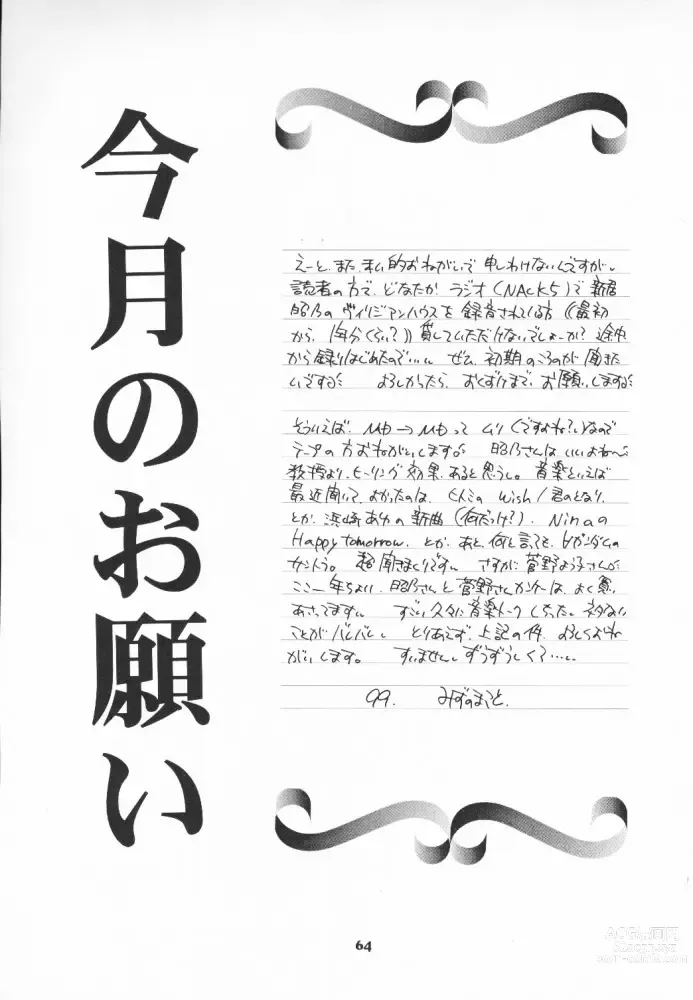 今月のお願い
えーと、また、私的おねがいで申しわけないんですが。
読者の方で、どなたか ラジオ(NACK5)で 新居
昭乃のヴィリジアンハウスを録音されてる方《最初
から、1年分くらい?》貸していただけないでしょーか? 途中
から録りはじめたので…。ぜひ、初期のころのが聞きた
いですっ。 よろしかったら、おてがみまで、お願いしますっ。
そういえば、MD→MDって ムリ(ですよね?)なので
テープの方おねがいしますっ。 昭乃さんは、いいよね〜。
教授より、ヒーリング効果、あると思うし。音楽といえば
最近聞いて、よかったのは、くんこの wish/君のとなり
とか、浜崎あゆの新曲(何だっけ?)、Ninaの
Happy tomorrow、とか、あと、何と言っても、∀ガンダムの
サントラ。 超聞きまくりです。 さすがに菅野よう子さんっ
ここ一年ちょい、昭乃さんと菅野さん
すごい久々に音楽トークしちった。ネタない
ことがバレバレ。 とりあえず、上記の件、よろしくおね
がいします。 すいません。ずうずうしくて…。
99. みずのまこと.
64